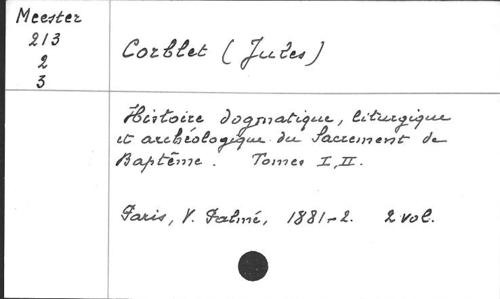 Meester
213
2
3
Corblet (Jules)
Histoire dogmatique, liturgique
et archéologique du Sacrement de
Baptême. Tomes I, II.
Paris, V. Palmé, 1881-2. 2 vol.